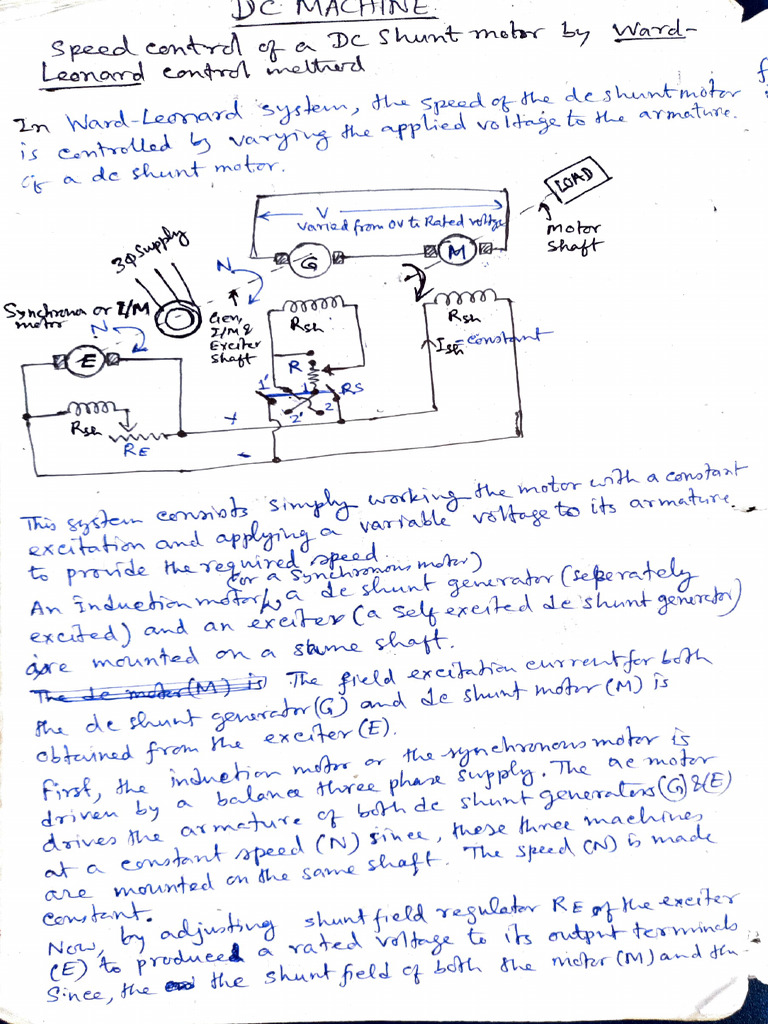 DC MACHINE
Speed control of a DC Shunt motor by Ward-
Leonard control method
In Ward-Leonard system, the speed of the dc shunt motor
is controlled by varying the applied voltage to the armature.
of a dc shunt motor.
LOAD
V
Varied from 0V to Rated voltge
Motor
Shaft
3Φ Supply
N
G
M
Synchronou or I/M
motor
N
Gen,
I/M &
Exciter
Shaft
Rsh
Rsh
Ish=constant
E
R
1'
1
RS
2'
2
Rsh
RE
+
-
This system consists simply working the motor with a constant
excitation and applying a variable voltage to its armature
to provide the required speed.
(or a synchronous motor)
An Induction motor, a dc shunt generator (seperately
excited) and an exciter (a self excited dc shunt generator)
are mounted on a same shaft.
The dc motor (M) is The field excitation current for both
the dc shunt generator (G) and dc shunt motor (M) is
obtained from the exciter (E).
First, the induction motor or the synchronous motor is
driven by a balance three phase supply. The ac motor
drives the armature of both dc shunt generators (G) & (E)
at a constant speed (N) since, these three machines
are mounted on the same shaft. The speed (N) is made
constant.
Now, by adjusting shunt field regulator RE of the exciter
(E) to produced a rated voltage to its output terminals
Since, the the shunt field of both the motor (M) and the